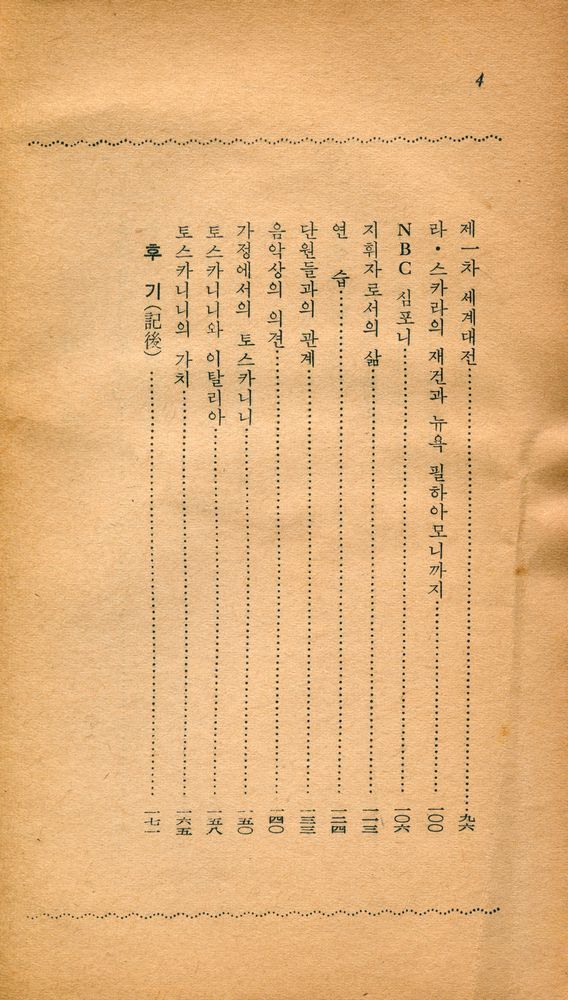 4
제一차 세계대전……九六
라·스카라의 재건과 뉴욕 필하아모니까지……一〇〇
NBC 심포니……一〇六
지휘자로서의 삶……一一三
연 습……一二四
단원들과의 관계……一三三
음악상의 의견……一四〇
가정에서의 토스카니니……一五〇
토스카니니와 이탈리아……一五八
토스카니니의 가치……一六五
후 기(記後)……一七一